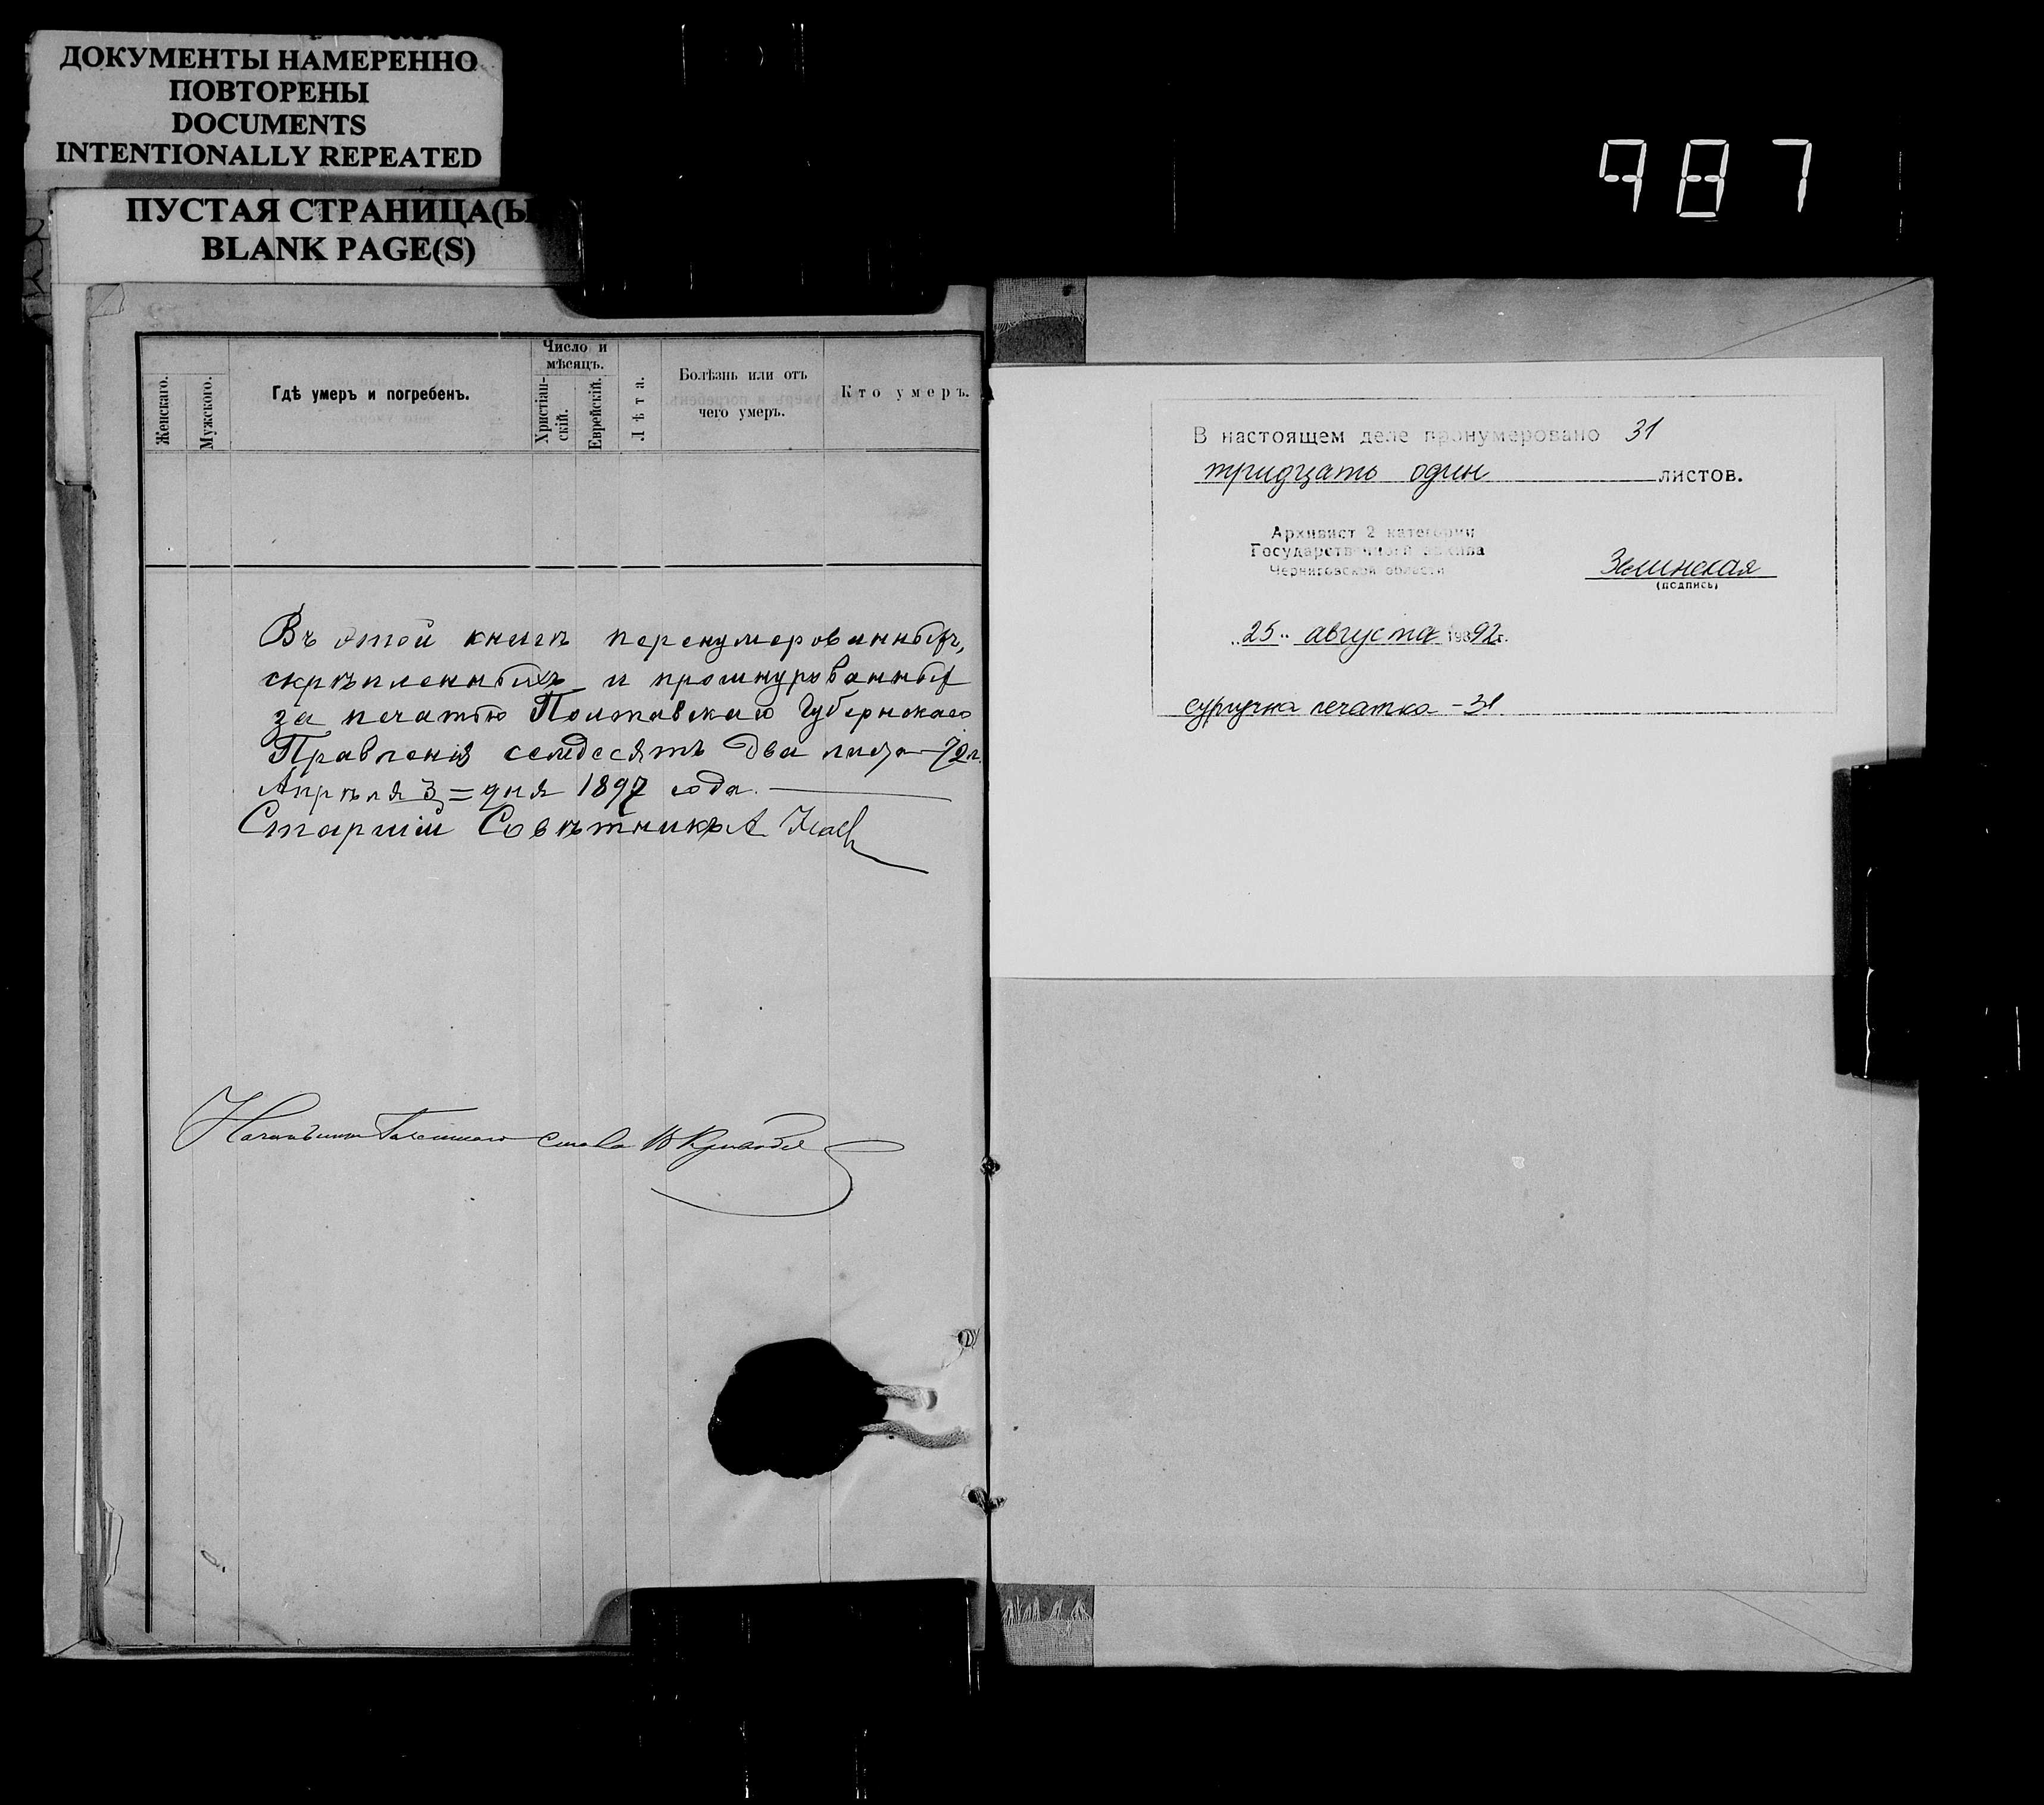 ДОКУМЕНТЫ НАМЕРЕННО
ПОВТОРЕНЫ
DOCUMENTS
INTENTIONALLY REPEATED
ПУСТАЯ СТРАНИЦА(Ы
BLANK PAGE(S)
987
Женскаго.
Мужского.
Гдѣ умеръ и погребенъ.
Число и
мѣсяцъ.
Христіан-
скій.
Еврейскій.
Лѣта.
Болѣзнь или отъ
чего умеръ.
Кто умеръ.
Въ этой книгѣ перенумерованныхъ,
скрѣпленныхъ и прошнурованныхъ
за печатью Полтавскаго Губернскаго
Правленія семдесятъ два листа 72 л.
Апрѣля 3 = дня 1897 года.
Старшій Совѣтникъ А
В настоящем деле пронумеровано 31
тридцать один листов.
Архивист 2 категории
Государственного архива
Черниговской области
(подпись)
„25" августа 19892г.
сургучна печатка - 31